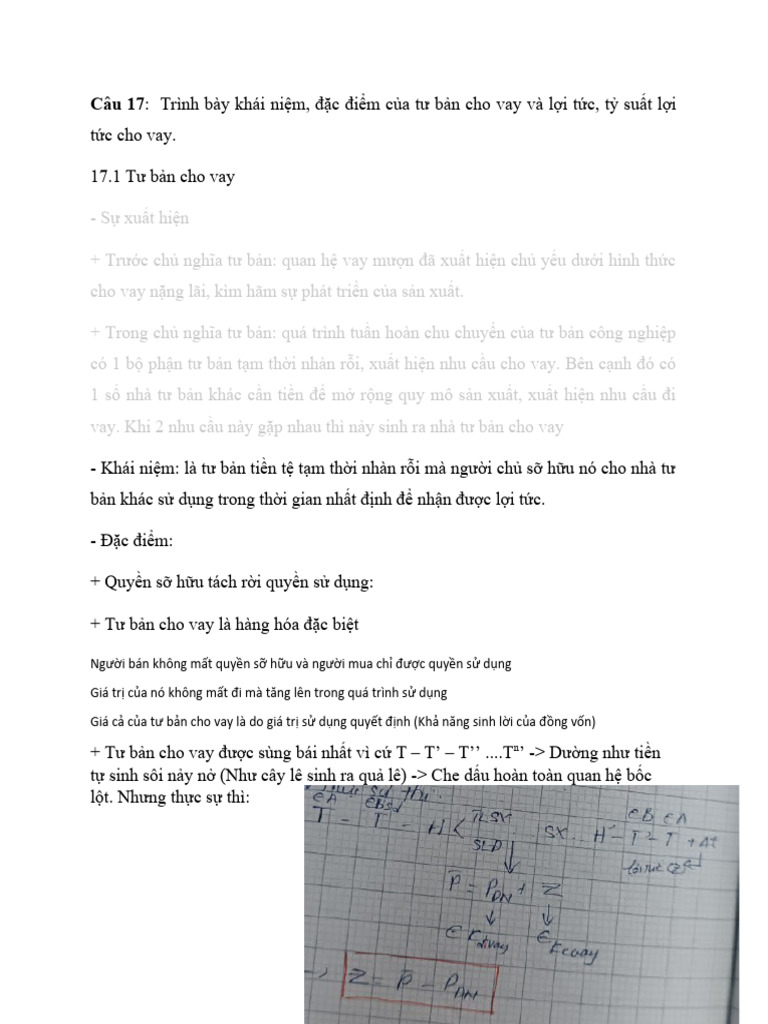 Câu 17:  Trình bày khái niệm, đặc điểm của tư bản cho vay và lợi tức, tỷ suất lợi
tức cho vay.
17.1 Tư bản cho vay
- Sự xuất hiện
+ Trước chủ nghĩa tư bản: quan hệ vay mượn đã xuất hiện chủ yếu dưới hình thức
cho vay nặng lãi, kìm hãm sự phát triển của sản xuất.
+ Trong chủ nghĩa tư bản: quá trình tuần hoàn chu chuyển của tư bản công nghiệp
có 1 bộ phận tư bản tạm thời nhàn rỗi, xuất hiện nhu cầu cho vay. Bên cạnh đó có
1 số nhà tư bản khác cần tiền để mở rộng quy mô sản xuất, xuất hiện nhu cầu đi
vay. Khi 2 nhu cầu này gặp nhau thì nảy sinh ra nhà tư bản cho vay
- Khái niệm: là tư bản tiền tệ tạm thời nhàn rỗi mà người chủ sỡ hữu nó cho nhà tư
bản khác sử dụng trong thời gian nhất định để nhận được lợi tức.
- Đặc điểm:
+ Quyền sỡ hữu tách rời quyền sử dụng:
+ Tư bản cho vay là hàng hóa đặc biệt
Người bán không mất quyền sỡ hữu và người mua chỉ được quyền sử dụng
Giá trị của nó không mất đi mà tăng lên trong quá trình sử dụng
Giá cả của tư bản cho vay là do giá trị sử dụng quyết định (Khả năng sinh lời của đồng vốn)
+ Tư bản cho vay được sùng bái nhất vì cứ T – T’ – T’’ ....Tⁿ’ -> Dường như tiền
tự sinh sôi nảy nở (Như cây lê sinh ra quả lê) -> Che dấu hoàn toàn quan hệ bốc
lột. Nhưng thực sự thì:
∈A ∈B ∈B ∈A
T – T – H < TLSX SX H' – T' – T + Δt
SLĐ
P̄ = P_DN + Z
∈ K đi vay ∈ K c vay
Z = P̄ – P_DN